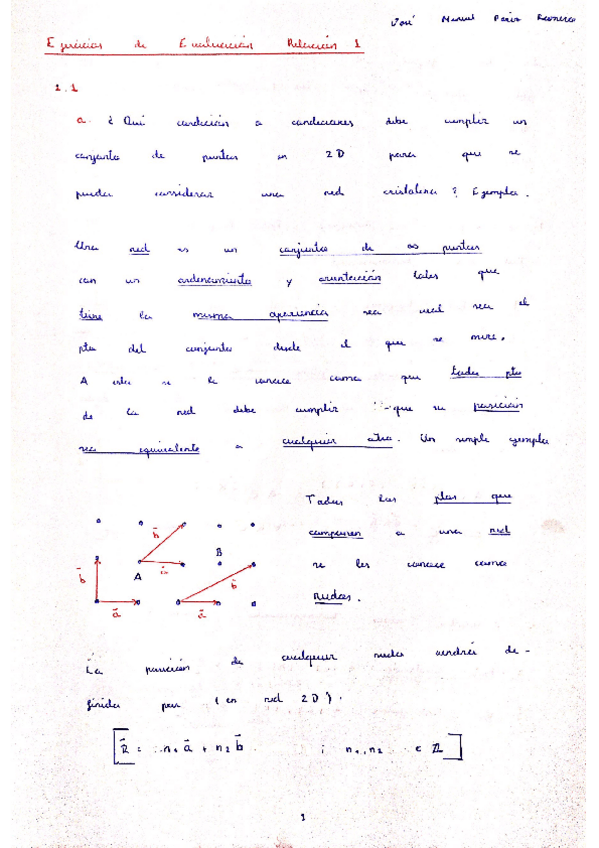 José Manuel
Ejercicios de Evaluación Relación 1
1.1
a. ¿ Qué condición o condiciones debe cumplir un
conjunto de puntos en 2D para que se
pueda considerar una red cristalina ? Ejemplo.
Una red es un conjunto de ∞ puntos
con un ordenamiento y orientación tales que
tiene la misma apariencia sea cual sea el
pto del conjunto desde el que se mire.
A esta se le conoce como que todo pto
de la red debe cumplir que su posición
sea equivalente a cualquier otra. Un simple ejemplo
Todos los ptos que
componen a una red
se les conoce como
nudos.
b
B
b a
A
b
a a
La posición de cualquier nudo vendrá de-
finida por (en red 2D).
R = n₁ a + n₂ b ; n₁, n₂ ∈ Z
1